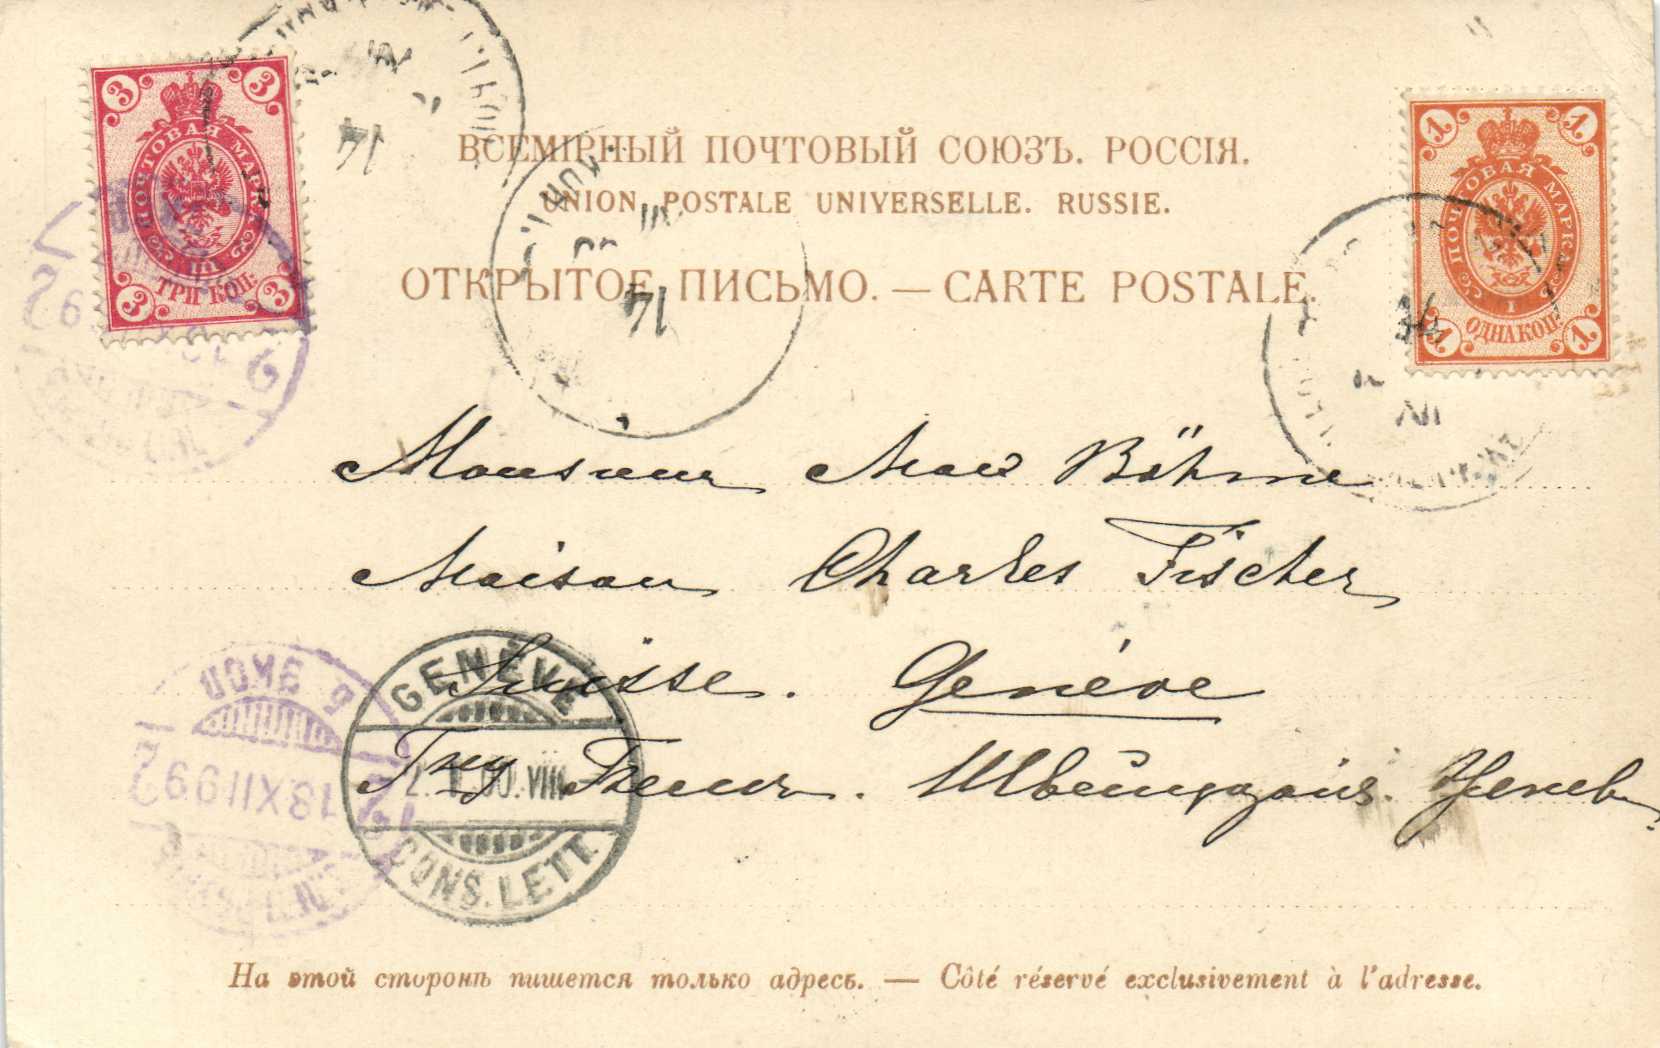 ВСЕМІРНЫЙ ПОЧТОВЫЙ СОЮЗЪ. РОССІЯ.
UNION POSTALE UNIVERSELLE. RUSSIE.
ОТКРЫТОЕ ПИСЬМО. — CARTE POSTALE.
3 3
ПОЧТОВАЯ МАРКА
III
ТРИ КОП.
3 3
1 1
ПОЧТОВАЯ МАРКА
I
ОДНА КОП.
1 1
14
14
XII
Monsieur Max Böhme
Maison Charles Fischer
Suisse. Genève
Швейцарія. Женева
GENÈVE
2. I. 00. VIII
CONS. LETT.
5 ЭКСП
18 XII 99
На этой сторонѣ пишется только адресъ. — Côté réservé exclusivement à l'adresse.